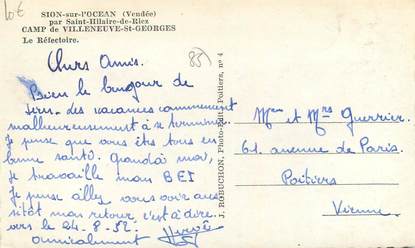 10€
SION-sur-l'OCEAN (Vendée)
par Saint-Hilaire-de-Riez
CAMP de VILLENEUVE-St-GEORGES
Le Réfectoire.
(85)
Chers Amis.
Bien le bonjour de
Sion. Les vacances commencent
malheureusement à se terminer.
Je pense que vous êtes tous en
bonne santé. Quand à moi,
je travaille mon BEI
Je pense aller vous voir aus
sitôt mon retour, c'est à dire
vers le 24-8-52
amicalement Hervé
J. ROBUCHON, Photo-Edit. Poitiers, nº 4
et Mrs Guerrier.
61. avenue de Paris.
Poitiers
Vienne.